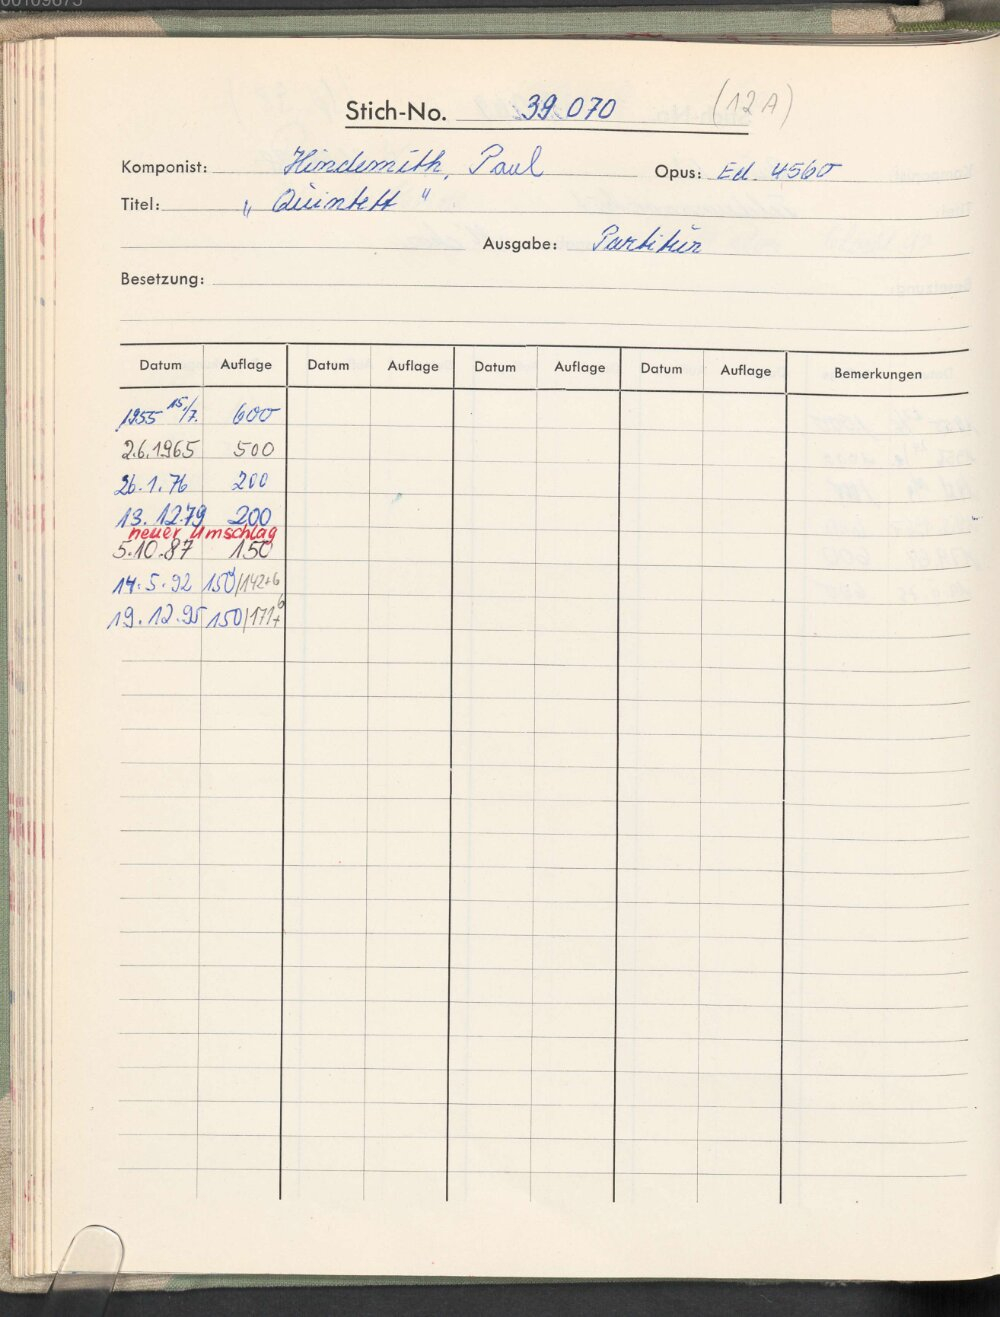 Stich-No. 39 070 (12A)
Komponist: Hindemith, Paul Opus: Ed. 4560
Titel: "Quintett"
Ausgabe: Partitur
Besetzung:
Datum Auflage Datum Auflage Datum Auflage Datum Auflage Bemerkungen
1955 15/7. 600
2.6.1965 500
26.1.76 200
13.12.79 200
neuer Umschlag
5.10.87 150
14.5.92 150/142+6
19.12.95 150/171+6